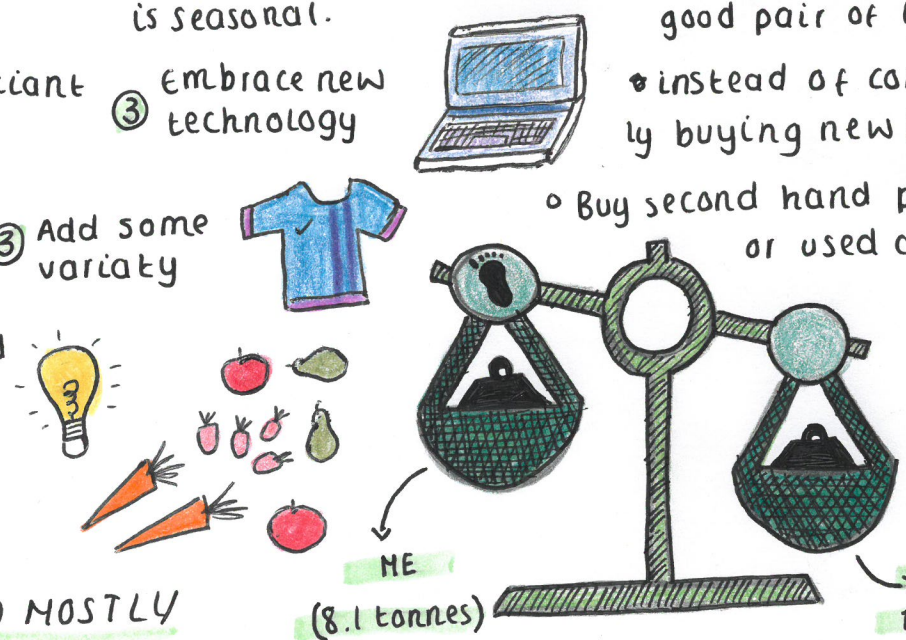 is seasonal.
good pair of
③ Embrace new
technology
instead of
ly buying new
③ Add some
variaty
Buy second hand
or used
ME
(8.1 tonnes)
MOSTLY